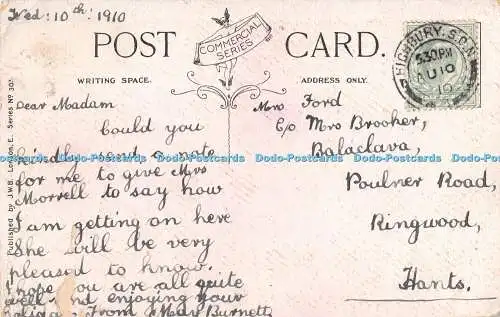 Wed: 10th: 1910
POST CARD.
COMMERCIAL SERIES
WRITING SPACE.
ADDRESS ONLY.
HIGHBURY. S.O.N.
5.30PM
U 10
10
Dear Madam
Could you
kindly send a note
for me to give Mrs
Morrell to say how
I am getting on here
She will be very
pleased to know.
I hope you are all quite
well and enjoying your
From Mary Burnett
Mrs Ford
C/o Mrs Brooker,
Balaclava,
Poulner Road,
Ringwood,
Hants.
Published by J.W.B. London, E. Series No 307.
Dodo-Postcards Dodo-Postcards Dodo-Postcards Dodo-Postcards Dodo-Postcards Dodo-Postcards